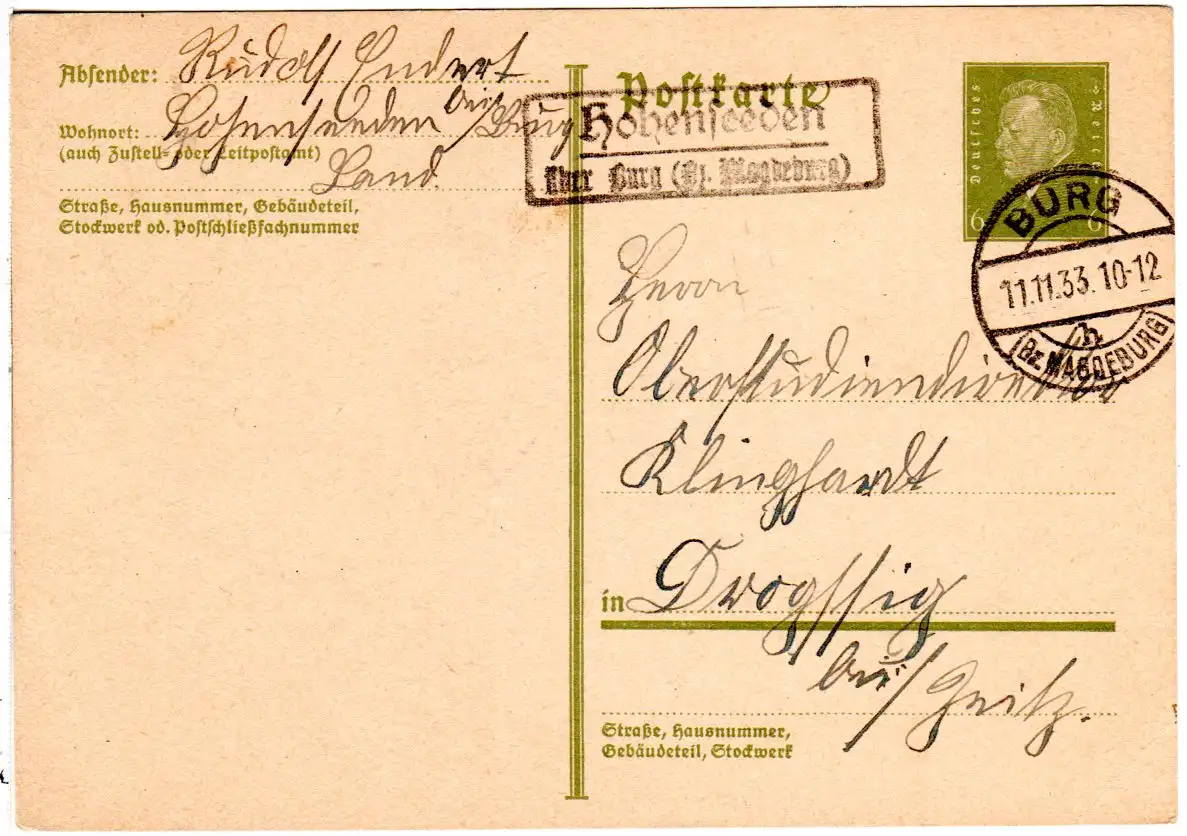 Absender: Rudolf Endert
Wohnort: Hohenseeden bei/Burg
(auch Zustell- oder Leitpostamt)
Land.
Straße, Hausnummer, Gebäudeteil,
Stockwerk od. Postschließfachnummer
Postkarte
Hohenseeden
über Burg (Bz. Magdeburg)
Deutsches Reich
6 6
BURG
11.11.33. 10-12
h
(Bz. MAGDEBURG)
Herrn
Oberstudiendirektor
Klinghardt
in Drogssig
bei/Zeitz.
Straße, Hausnummer,
Gebäudeteil, Stockwerk